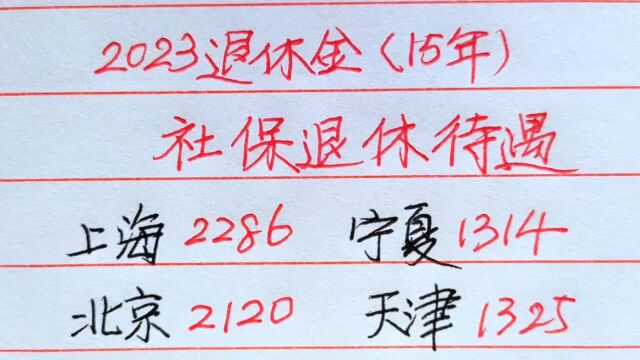 2023退休金(15年)
社保退休待遇
上海 2286 宁夏 1314
北京 2120 天津 1325